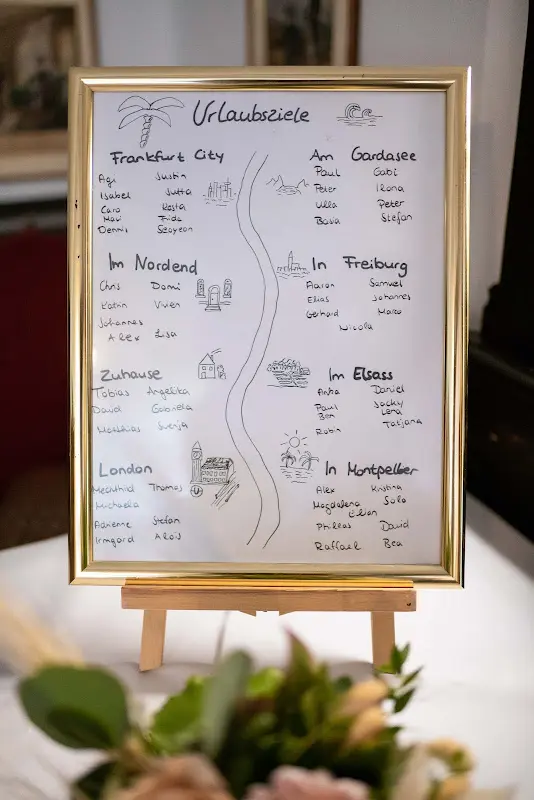 Urlaubsziele
Frankfurt City
Agi Justin
Isabel Jutta
Caro Kosta
Mavi Frida
Dennis Seoyeon
Im Nordend
Chris Domi
Katrin Vivien
Johannes
Alex Lisa
Zuhause
Tobias Angelika
David Gabriela
Matthias Svenja
London
Mechthild Thomas
Michaela
Adrienne Stefan
Irmgard Alois
Am Gardasee
Paul Gabi
Peter Ilona
Ulla Peter
Stefan
In Freiburg
Aaron Samuel
Elias Johannes
Gerhard Marco
Nicola
Im Elsass
Anka Daniel
Paul Jacky
Ben Lena
Robin Tatjana
In Montpellier
Alex Kristina
Magdalena
Lilian
Phileas David
Raffael Bea